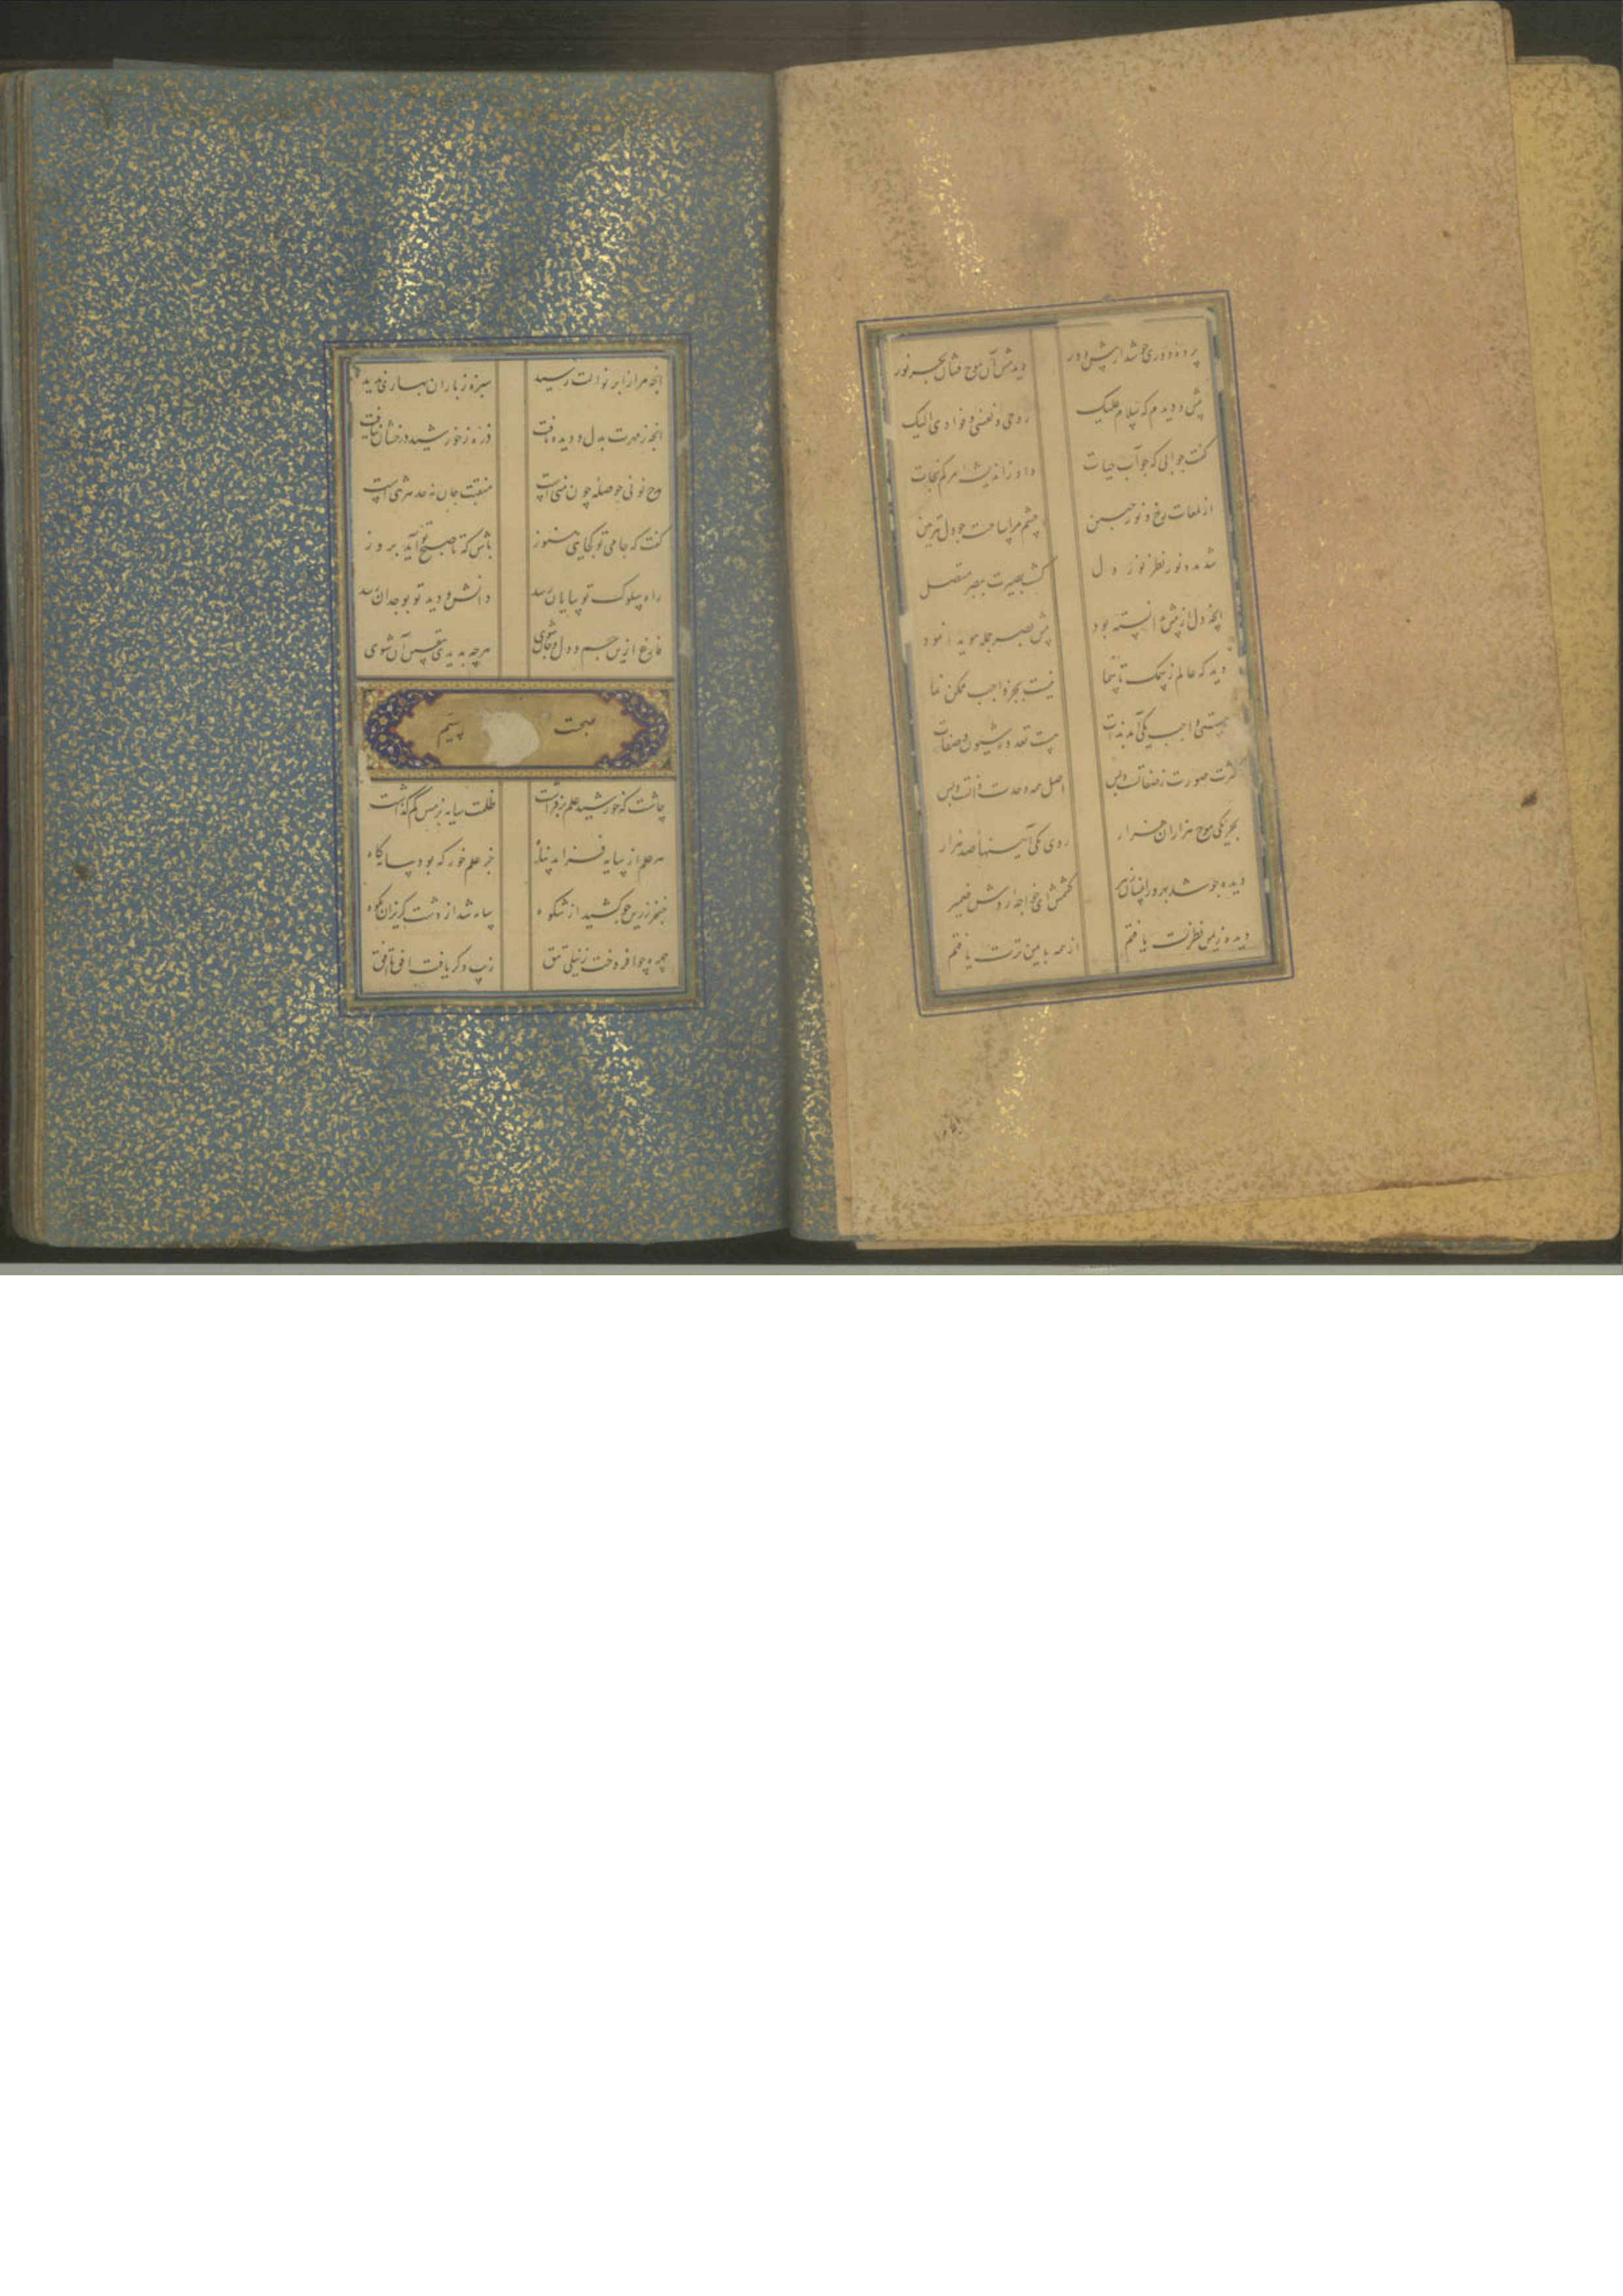 پرده دوری چو شد از پیش دور
دیدمش آن موج فشان بحر نور
پیش دویدم که سلام علیک
روحی و نفسی و فوادی الیک
گفت جوابی که چو آب حیات
داد ز اندیشه مرگم نجات
از لمعات رخ و نور جبین
چشم مرا ساخت چو دل تیزبین
شد مدد نور نظر نور دل
گشت بصیرت ببصر متصل
آنچه دل از پیش دانسته بود
پیش بصر جمله هویدا نمود
دید که عالم ز سمک تا سما
نیست بجز واجب ممکن نما
هستی واجب یکی آمد بذات
هست تعدد ز شیون و صفات
کثرت صورت ز صفاتست و بس
اصل همه وحدت ذاتست و بس
بحر یکی موج هزاران هزار
روی یکی آینها صد هزار
دیده چو شد بهره ور از آن
گفتمش ای خواجه روشن ضمیر
دیده زیمن نظرت یافتم
از همه با من ترت یافتم
آنچه مرا ز ابر نوالت رسید
سبزه ز باران بهاری ندید
آنچه ز مهرت بدل و دیده تافت
ذره ز خورشید درخشان نیافت
مدح تو نی حوصله چون منی است
منقبت جان نه حد هر تنی است
گفت که جامی تو کجایی هنوز
باش که تا صبح تو آید بروز
راه سلوک تو بپایان رسد
دانش و دید تو بوجدان رسد
فارغ ازین جسم و دل و جان شوی
هرچه بدیدی بنفس آن شوی
صحبت سیم
چاشت که خورشید علم بر فراشت
ظلمت سایه بزمین کم گذاشت
هر علم از سایه فزاید پناه
جز علم خور که بود سایه کاه
خنجر زرین چو کشید از شکوه
سایه شد از دشت گریزان بکوه
چهره چو افروخت ز نیلی تتق
زیب دگر یافت افق تا افق